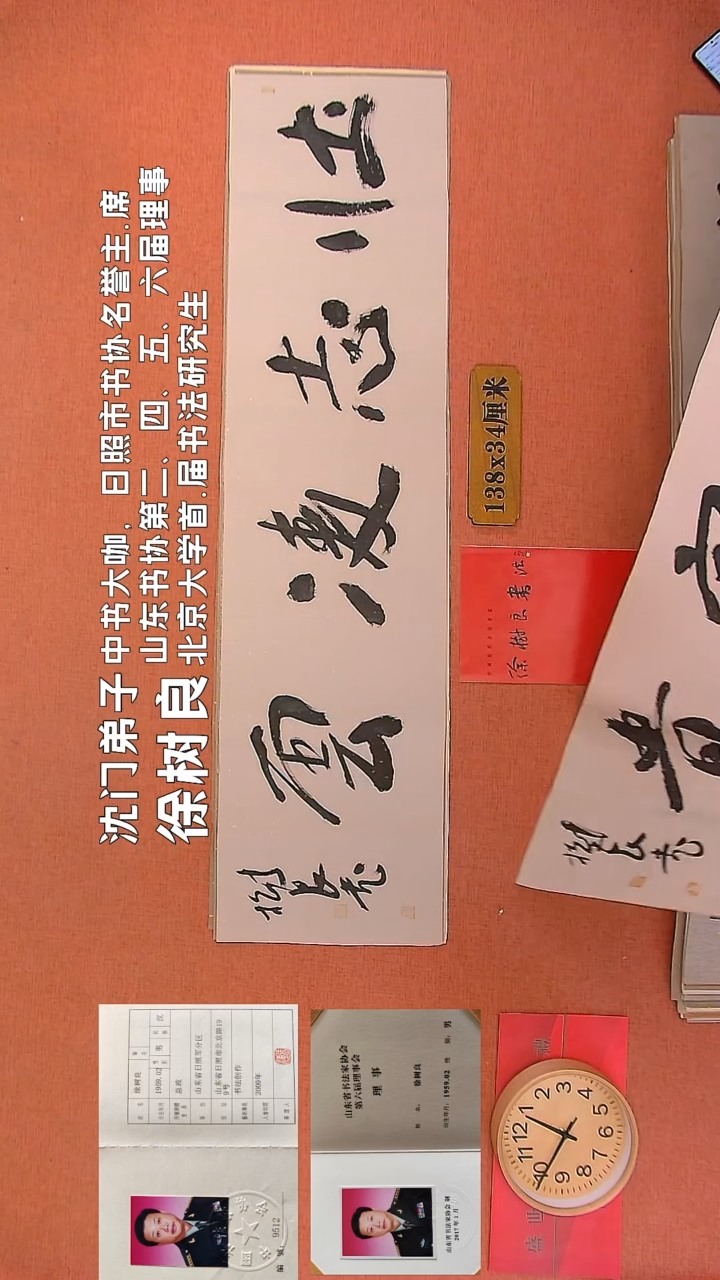 沈门弟子 中书大咖，日照市书协名誉主.席
山东书协第二、四、五、六届理事
徐树良 北京大学首.届书法研究生
壮志凌雲
樹良
138x34厘米
徐樹良書法
徐树良
1959.02 男 汉
总政
山东省日照军分区
山东省日照市北京路19
9号
书法创作
2009年
编号 9512
山东省书法家协会
第六届理事会
理事
姓名： 徐树良
出生年月：1959.02 性别：男
山东省书法家协会 制
2017年1月
盛世
12
1
2
3
4
5
6
7
8
9
10
11